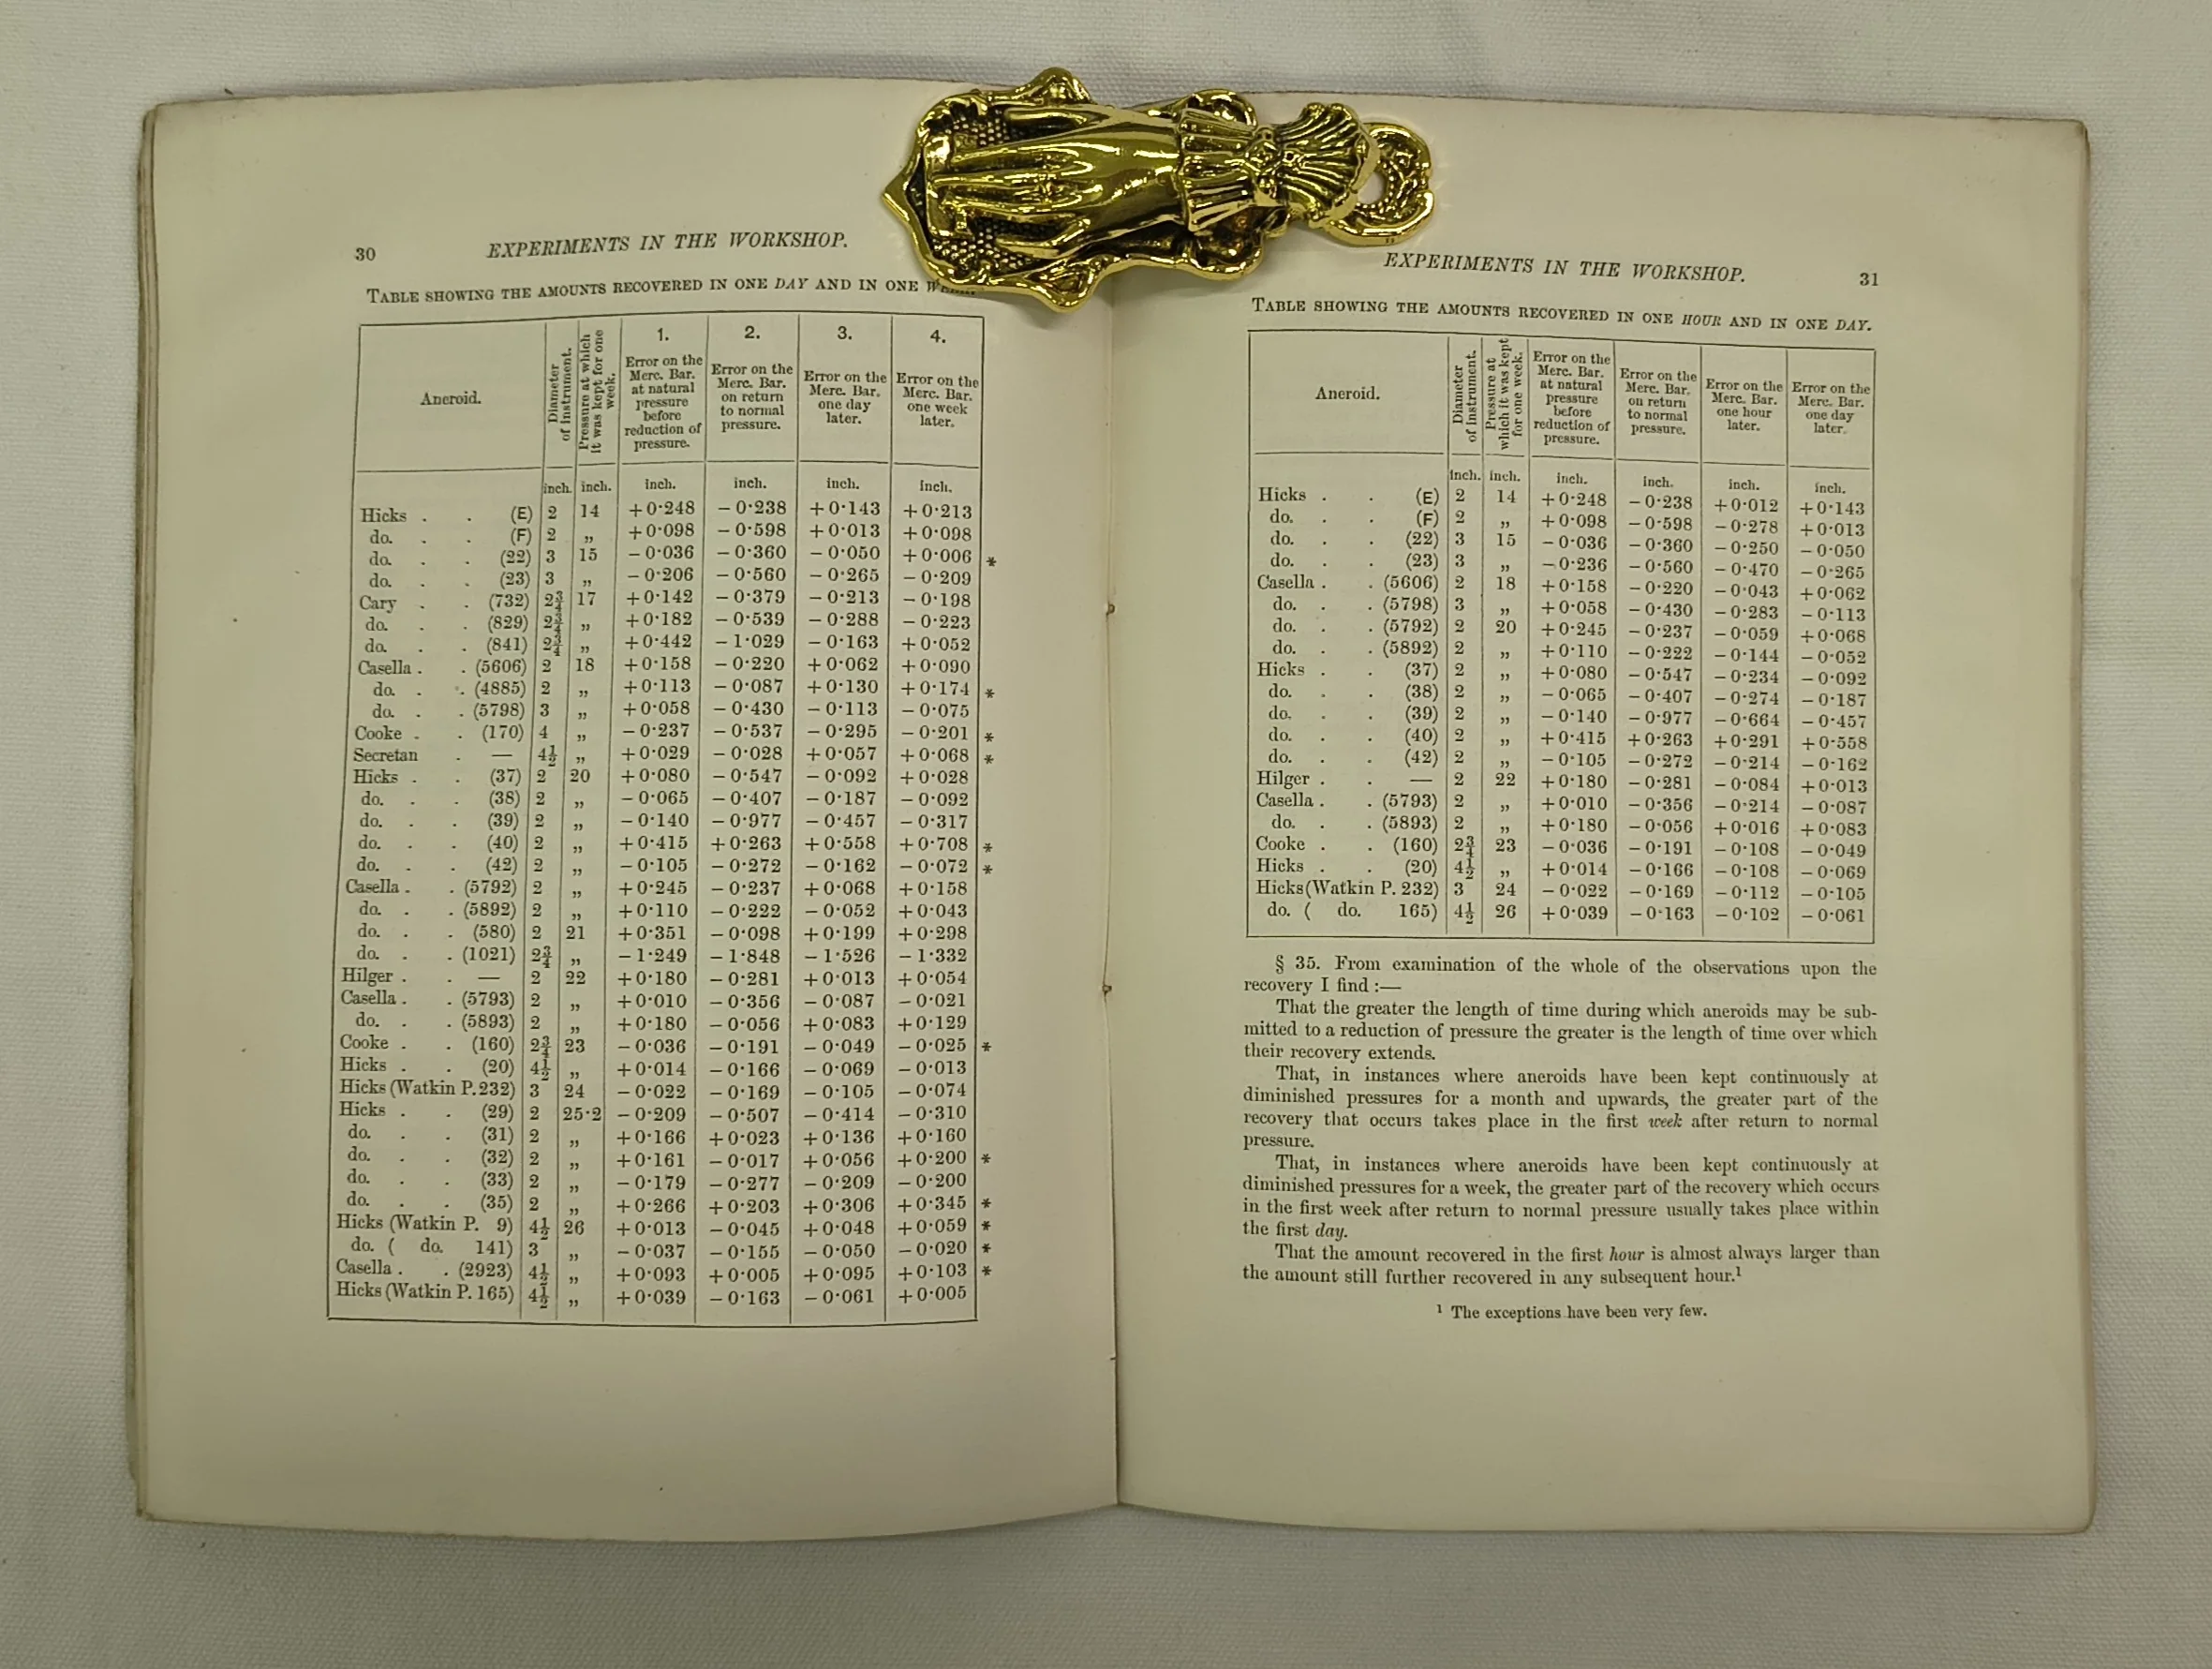 30
EXPERIMENTS IN THE WORKSHOP.
TABLE SHOWING THE AMOUNTS RECOVERED IN ONE DAY AND IN ONE
Aneroid.
Diameter of instrument.
Pressure at which it was kept for one week.
1. Error on the Merc. Bar. at natural pressure before reduction of pressure.
2. Error on the Merc. Bar. on return to normal pressure.
3. Error on the Merc. Bar. one day later.
4. Error on the Merc. Bar. one week later.
inch. inch. inch. inch. inch. inch.
Hicks . . (E) 2 14 +0·248 −0·238 +0·143 +0·213
do. . . (F) 2 ,, +0·098 −0·598 +0·013 +0·098
do. . . (22) 3 15 −0·036 −0·360 −0·050 +0·006 *
do. . . (23) 3 ,, −0·206 −0·560 −0·265 −0·209
Cary . . (732) 2¾ 17 +0·142 −0·379 −0·213 −0·198
do. . . (829) 2¾ ,, +0·182 −0·539 −0·288 −0·223
do. . . (841) 2¾ ,, +0·442 −1·029 −0·163 +0·052
Casella . . (5606) 2 18 +0·158 −0·220 +0·062 +0·090
do. . . (4885) 2 ,, +0·113 −0·087 +0·130 +0·174 *
do. . . (5798) 3 ,, +0·058 −0·430 −0·113 −0·075
Cooke . . (170) 4 ,, −0·237 −0·537 −0·295 −0·201 *
Secretan . — 4½ ,, +0·029 −0·028 +0·057 +0·068 *
Hicks . . (37) 2 20 +0·080 −0·547 −0·092 +0·028
do. . . (38) 2 ,, −0·065 −0·407 −0·187 −0·092
do. . . (39) 2 ,, −0·140 −0·977 −0·457 −0·317
do. . . (40) 2 ,, +0·415 +0·263 +0·558 +0·708 *
do. . . (42) 2 ,, −0·105 −0·272 −0·162 −0·072 *
Casella . . (5792) 2 ,, +0·245 −0·237 +0·068 +0·158
do. . . (5892) 2 ,, +0·110 −0·222 −0·052 +0·043
do. . . (580) 2 21 +0·351 −0·098 +0·199 +0·298
do. . . (1021) 2¾ ,, −1·249 −1·848 −1·526 −1·332
Hilger . . — 2 22 +0·180 −0·281 +0·013 +0·054
Casella . . (5793) 2 ,, +0·010 −0·356 −0·087 −0·021
do. . . (5893) 2 ,, +0·180 −0·056 +0·083 +0·129
Cooke . . (160) 2¾ 23 −0·036 −0·191 −0·049 −0·025 *
Hicks . . (20) 4½ ,, +0·014 −0·166 −0·069 −0·013
Hicks (Watkin P. 232) 3 24 −0·022 −0·169 −0·105 −0·074
Hicks . . (29) 2 25·2 −0·209 −0·507 −0·414 −0·310
do. . . (31) 2 ,, +0·166 +0·023 +0·136 +0·160
do. . . (32) 2 ,, +0·161 −0·017 +0·056 +0·200 *
do. . . (33) 2 ,, −0·179 −0·277 −0·209 −0·200
do. . . (35) 2 ,, +0·266 +0·203 +0·306 +0·345 *
Hicks (Watkin P. 9) 4½ 26 +0·013 −0·045 +0·048 +0·059 *
do. ( do. 141) 3 ,, −0·037 −0·155 −0·050 −0·020 *
Casella . . (2923) 4½ ,, +0·093 +0·005 +0·095 +0·103 *
Hicks (Watkin P. 165) 4½ ,, +0·039 −0·163 −0·061 +0·005
EXPERIMENTS IN THE WORKSHOP.
31
TABLE SHOWING THE AMOUNTS RECOVERED IN ONE HOUR AND IN ONE DAY.
Aneroid.
Diameter of instrument.
Pressure at which it was kept for one week.
Error on the Merc. Bar. at natural pressure before reduction of pressure.
Error on the Merc. Bar. on return to normal pressure.
Error on the Merc. Bar. one hour later.
Error on the Merc. Bar. one day later.
inch. inch. inch. inch. inch. inch.
Hicks . . (E) 2 14 +0·248 −0·238 +0·012 +0·143
do. . . (F) 2 ,, +0·098 −0·598 −0·278 +0·013
do. . . (22) 3 15 −0·036 −0·360 −0·250 −0·050
do. . . (23) 3 ,, −0·236 −0·560 −0·470 −0·265
Casella . . (5606) 2 18 +0·158 −0·220 −0·043 +0·062
do. . . (5798) 3 ,, +0·058 −0·430 −0·283 −0·113
do. . . (5792) 2 20 +0·245 −0·237 −0·059 +0·068
do. . . (5892) 2 ,, +0·110 −0·222 −0·144 −0·052
Hicks . . (37) 2 ,, +0·080 −0·547 −0·234 −0·092
do. . . (38) 2 ,, −0·065 −0·407 −0·274 −0·187
do. . . (39) 2 ,, −0·140 −0·977 −0·664 −0·457
do. . . (40) 2 ,, +0·415 +0·263 +0·291 +0·558
do. . . (42) 2 ,, −0·105 −0·272 −0·214 −0·162
Hilger . . — 2 22 +0·180 −0·281 −0·084 +0·013
Casella . . (5793) 2 ,, +0·010 −0·356 −0·214 −0·087
do. . . (5893) 2 ,, +0·180 −0·056 +0·016 +0·083
Cooke . . (160) 2¾ 23 −0·036 −0·191 −0·108 −0·049
Hicks . . (20) 4½ ,, +0·014 −0·166 −0·108 −0·069
Hicks (Watkin P. 232) 3 24 −0·022 −0·169 −0·112 −0·105
do. ( do. 165) 4½ 26 +0·039 −0·163 −0·102 −0·061
§ 35. From examination of the whole of the observations upon the
recovery I find :—
That the greater the length of time during which aneroids may be sub-
mitted to a reduction of pressure the greater is the length of time over which
their recovery extends.
That, in instances where aneroids have been kept continuously at
diminished pressures for a month and upwards, the greater part of the
recovery that occurs takes place in the first week after return to normal
pressure.
That, in instances where aneroids have been kept continuously at
diminished pressures for a week, the greater part of the recovery which occurs
in the first week after return to normal pressure usually takes place within
the first day.
That the amount recovered in the first hour is almost always larger than
the amount still further recovered in any subsequent hour.¹
¹ The exceptions have been very few.